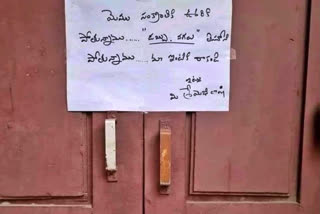 మేము సంక్రాంతికి ఊరికి
పోతున్నాము..... "డబ్బు, నగలు" తీసుకొని
పోతున్నాము..... మా ఇంటికి రాకండి
ఇట్లు
మీ శ్రేయోభిలాషి